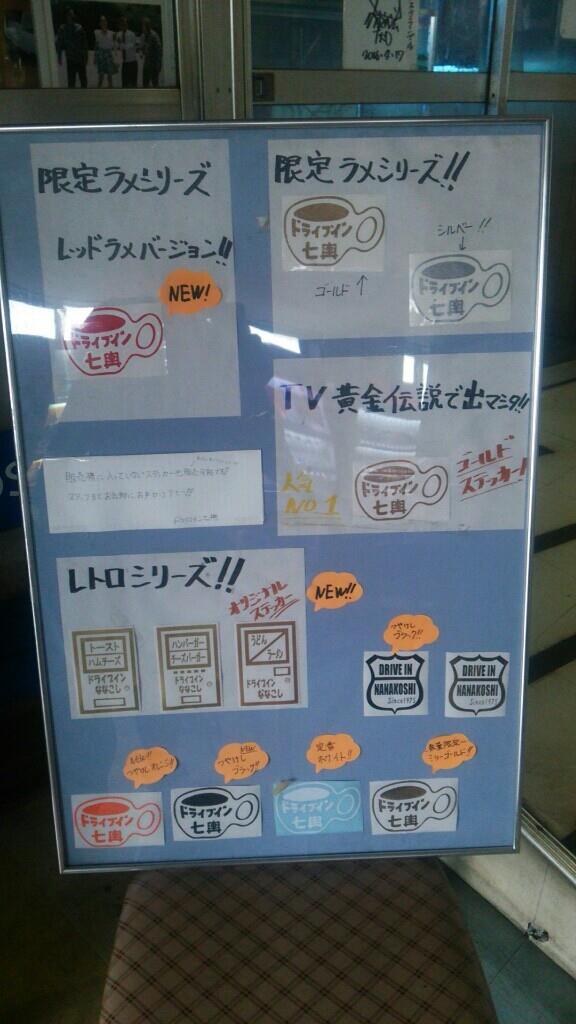 2016.9.17
限定ラメシリーズ
レッドラメバージョン!!
NEW!
ドライブイン
七輿
限定ラメシリーズ!!
ドライブイン
七輿
ゴールド↑
シルバー!!
↓
ドライブイン
七輿
TV黄金伝説で出マシタ!!
人気
NO 1
ドライブイン
七輿
ゴールド
ステッカー!
レトロシリーズ!!
オリジナル
ステッカー
NEW!!
トースト
ハムチーズ
ドライブイン
ななこし
ハンバーガー
チーズバーガー
ドライブイン
ななこし
うどん
ラーメン
ドライブイン
ななこし
つやけし
ブラック!!
DRIVE IN
NANAKOSHI
Since1975
DRIVE IN
NANAKOSHI
Since1975
NEW!!
つやけしオレンジ!!
ドライブイン
七輿
NEW
つやけし
ブラック!!
ドライブイン
七輿
定番
ホワイト!!
ドライブイン
七輿
数量限定
ミラーゴールド!!
ドライブイン
七輿